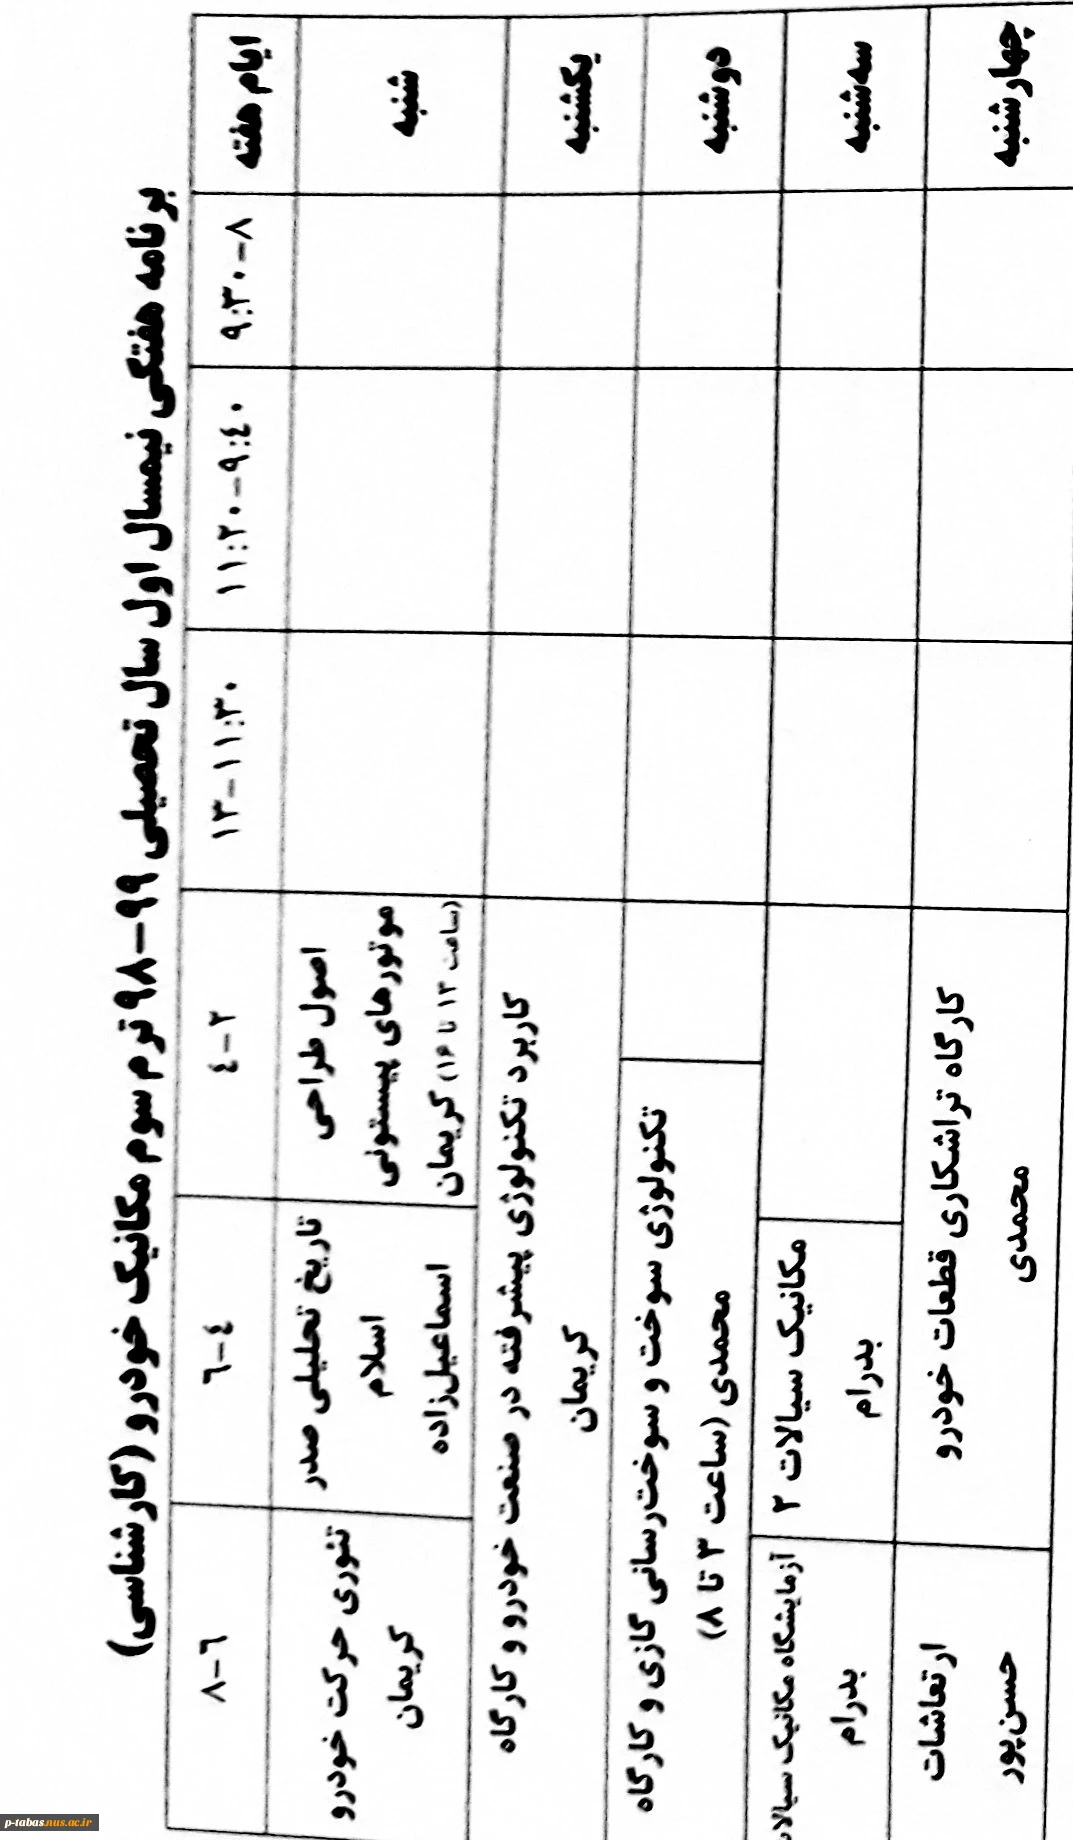 برنامه هفتگی نیمسال اول سال تحصیلی ۹۹-۹۸ ترم سوم مکانیک خودرو (کارشناسی)
ایام هفته
۸-۹:۳۰
۹:٤۰-۱۱:۲۰
۱۱:۳۰-۱۳
۲-٤
٤-٦
٦-۸
شنبه
اصول طراحی
موتورهای پیستونی
(ساعت ۱۳ تا ۱۶) کریمان
تاریخ تحلیلی صدر
اسلام
اسماعیل‌زاده
تئوری حرکت خودرو
کریمان
یکشنبه
کاربرد تکنولوژی پیشرفته در صنعت خودرو و کارگاه
کریمان
دوشنبه
تکنولوژی سوخت و سوخت‌رسانی گازی و کارگاه
محمدی (ساعت ۳ تا ۸)
سه‌شنبه
مکانیک سیالات ۲
بدرام
آزمایشگاه مکانیک سیالات
بدرام
چهارشنبه
کارگاه تراشکاری قطعات خودرو
محمدی
ارتعاشات
حسن‌پور
p-tabas.nus.ac.ir